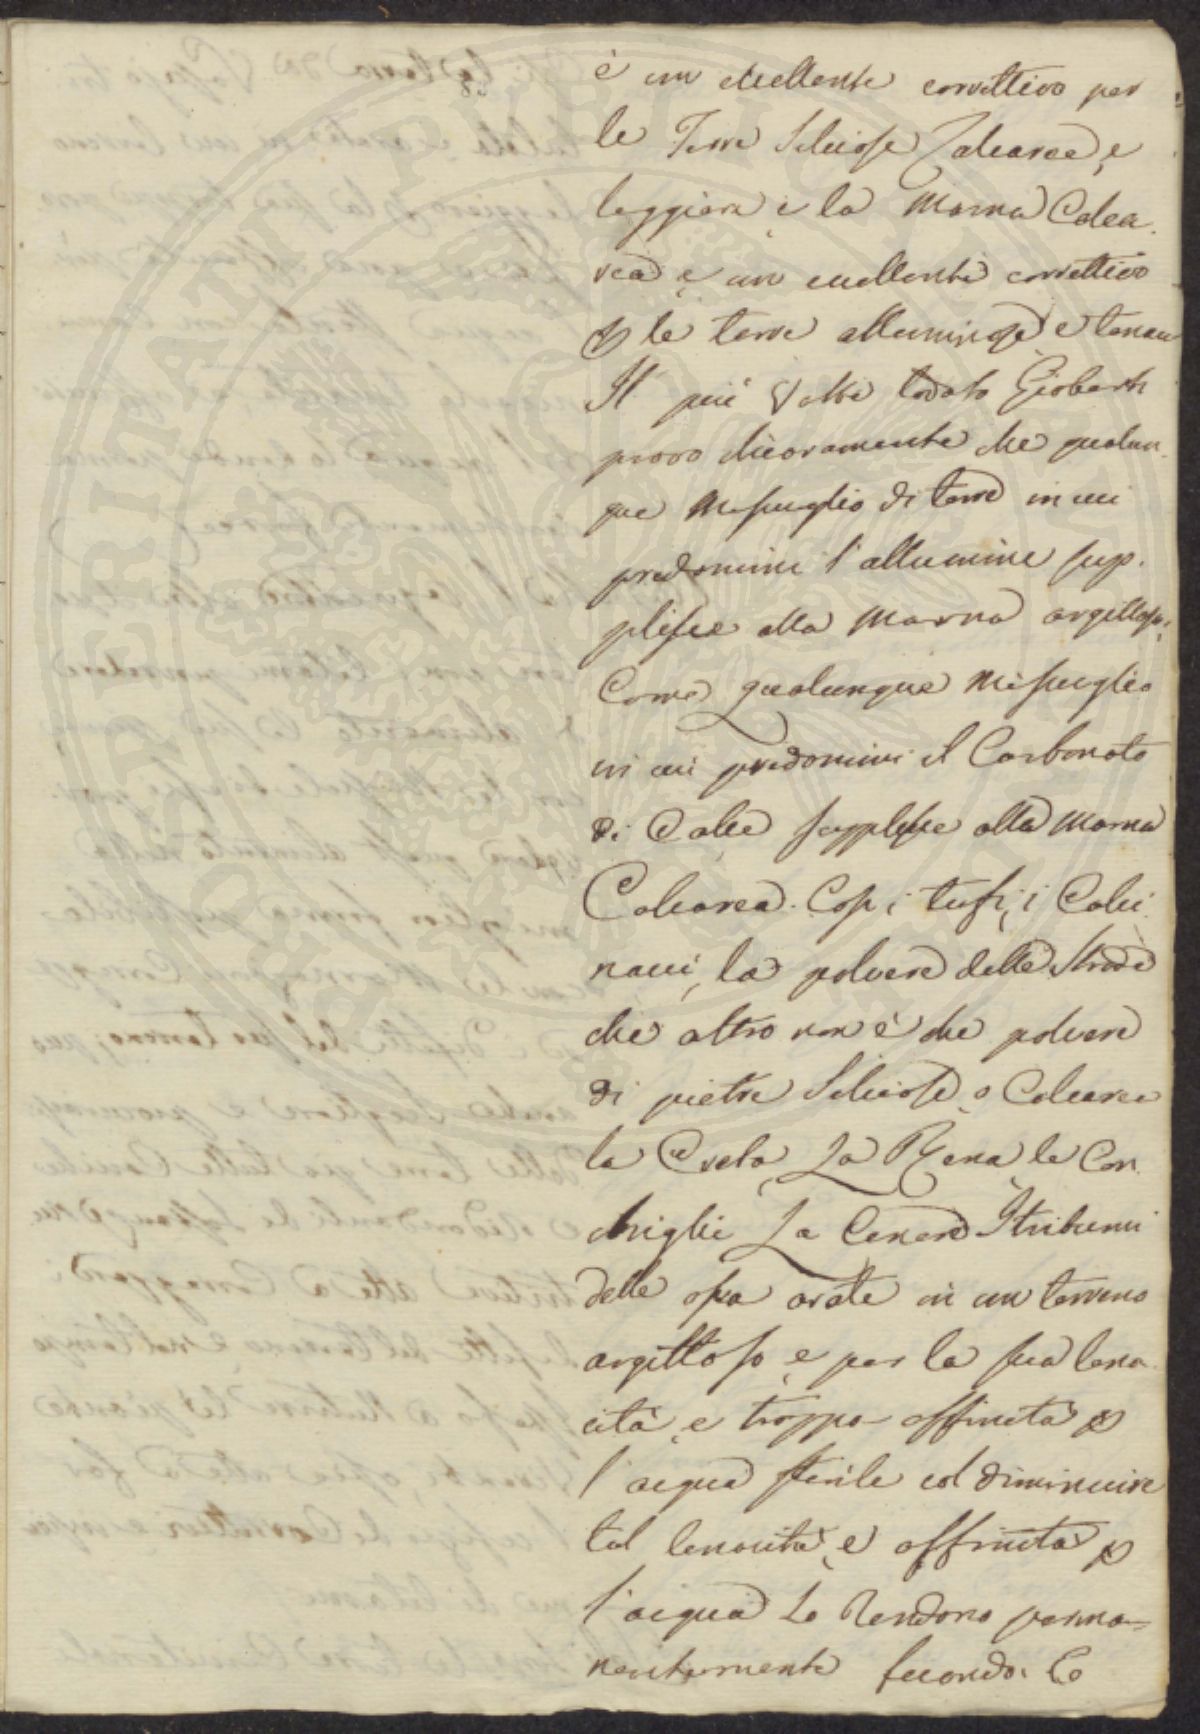 è un eccellente correttivo per
le Terre Silciose, Calcaree, e
leggiere; e la Marna Calca-
rea è un eccellente correttivo
p le terre alluminose e tenaci
Il più volte lodato Giobert
provò chiaramente che qualun-
que Mescuglio di terre in cui
predomini l'allumine sup-
plisce alla Marna argillosa,
Come qualunque Mescuglio
in cui predomini il Carbonato
di Calce supplisce alla Marna
Calcarea. Così i tufi, i Calci-
nacci, la polvere delle Strade
che altro non è che polvere
di pietre Silciose, o Calcaree
la Creta, La Rena, le Con-
chiglie La Cenere
delle arate in un terreno
argilloso, e per la sua tena-
cità, e troppa affinità p
l'acqua sterile col diminuire
tal tenacità, e affinità p
l'acqua Lo Rendono perma-
nentemente fecondo. Lo
OPERINATI PUBLICIN